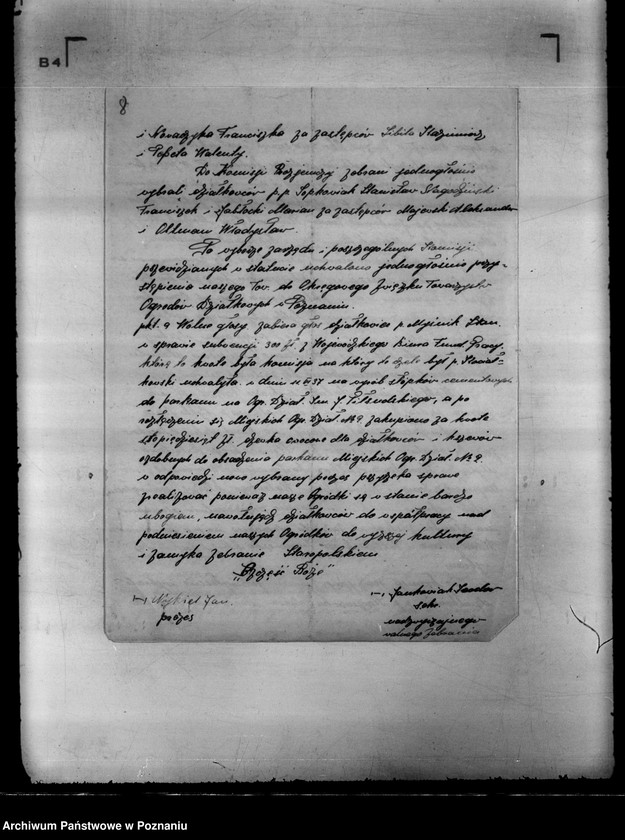 B4
8
i Nowaczyka Franciszka za zastępców Kazimierz
i Pepeta Walenty.
Do Komisji zebrani jednogłośnie
wybrali działkowców p.p. Sopkowiak Stanisław
Franciszek i Jabłocki Marian za zastępców Majewski Aleksander
i Ottman Władysław.
Po wyborze zarządu i poszczególnych Komisji
przewidzianych w statucie uchwalono jednogłośnie przy-
stąpienie naszego Tow. do Okręgowego Związku Towarzystw
Ogrodów Działkowych w Poznaniu.
pkt. 9 Wolne głosy. zabiera głos działkowiec p.
w sprawie subwencji 300 zł. z Wojewódzkiego Biura Fund. Pracy,
którą to kwotę była komisja na który to był p.
kowski uchwaliła w dniu na słupków cementowych
do parkanu na Ogr. Dział. Im. J. Piłsudskiego, a po
rozłączeniu się Miejskich Ogr. Dział. No 2. zakupiono za kwotę
stopiędziesiąt zł. drzewka owocowe dla działkowców i krzewów
ozdobnych do obsadzenia parkanu Miejskich Ogr. Dział. No 2.
w odpowiedzi nowo wybrany prezes sprawę
zrealizować ponieważ nasze Ogródki są w stanie bardzo
ubogiem, działkowców do współpracy nad
podniesieniem naszych Ogródków do wyższej kultury
i zamyka zebranie Staropolskiem
„Szczęść Boże"
Jan.
prezes
Jankowiak
sekr.
nadzwyczajnego
walnego Zebrania
Archiwum Państwowe w Poznaniu